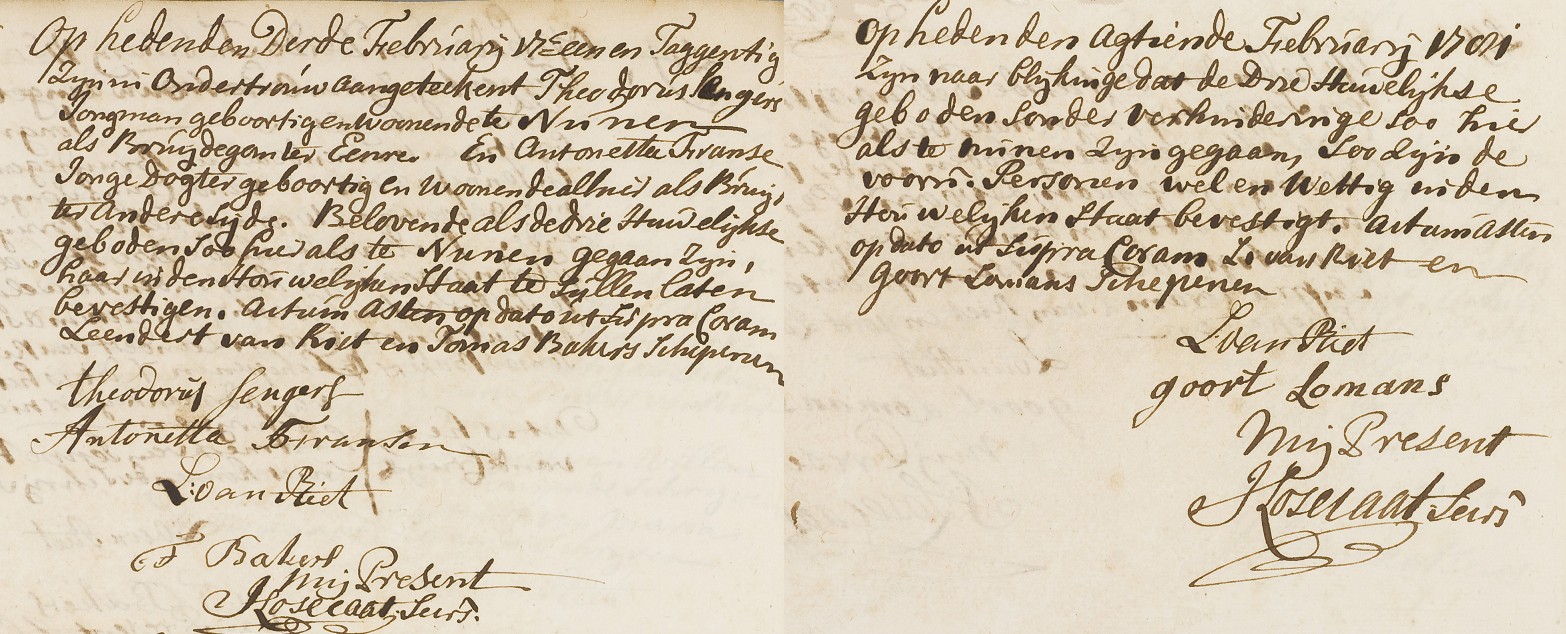 Op heden den Derde Februarij 17C een en Taggentig
Zijn in Ondertrouw aangeteekent Theodorus Sengers
Jongman geboortig en woonende te Nunen
als Bruijdegom ter Eenre. En Antonetta Franse
Jonge Dogter geboortig en woonende alhier als Bruij,
ter andere Zyde. Belovende als de drie Huwelijkse
geboden Soo hier als te Nunen gegaan Zyn,
haar in den Houwelijken Staat te Sullen laten
bevestigen. Actum Asten op dato ut Supra Coram
Leendert van Riet en Tomas Bakers Schepenen
theodorus sengers
Antonetta Fransen
L: van Riet
T Bakers
Mij Present
J Losecaat Secrs.
Op heden den Agtiende Februarij 1781
Zyn naar blykinge dat de Drie Huwelijkse
geboden Sonder verhinderinge Soo hier
als te Nunen Zyn gegaan, Soo Zyn de
voorn. Personen wel en Wettig in den
Houwelijken Staat bevestigt. Actum Asten
op dato ut Supra Coram L. van Riet en
Goort Lomans Schepenen
L van Riet
goort Lomans
Mij Present
J Losecaat Secrs